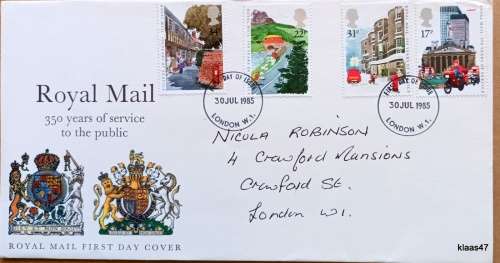 31P
22P
17P
FIRST DAY OF ISSUE
30 JUL 1985
LONDON W.1.
FIRST DAY OF ISSUE
30 JUL 1985
LONDON W.1.
Royal Mail
350 years of service
to the public
NICOLA ROBINSON
4 Crawford Mansions
Crawford St.
London W1.
ROYAL MAIL FIRST DAY COVER
klaas47